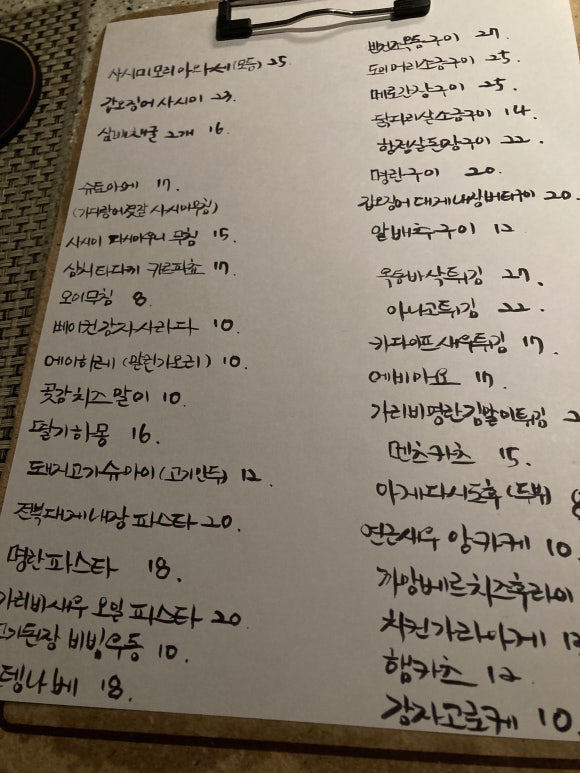 사시미 모리아와세(모듬) 25.
갑오징어 사시미 23.
삼배체굴 2개 16.
슈토아에 17.
사시미 다시마우니 무침 15.
삼치타다끼 카르파쵸 17.
오이무침 8.
베이컨감자사라다 10.
에이히레 (말린가오리) 10.
곶감치즈말이 10.
딸기하몽 16.
돼지고기슈마이(고기만두) 12.
전복대게내장 파스타 20.
명란파스타 18.
가리비새우 오일 파스타 20.
고기된장 비빔우동 10.
나베 18.
반건조옥돔구이 27.
도미머리소금구이 25.
메로간장구이 25.
닭다리살소금구이 14.
항정살된장구이 22.
명란구이 20.
갑오징어대게내장버터구이 20.
알배추구이 12
옥돔바삭튀김 27.
아나고튀김 22.
카다이프새우튀김 17.
에비마요 17.
가리비명란김말이튀김
멘츠카츠 15.
아게다시도후(두부)
연근새우 앙카케 10.
까망베르치즈후라이
치킨가라아게
햄카츠 12
감자고로케 10.